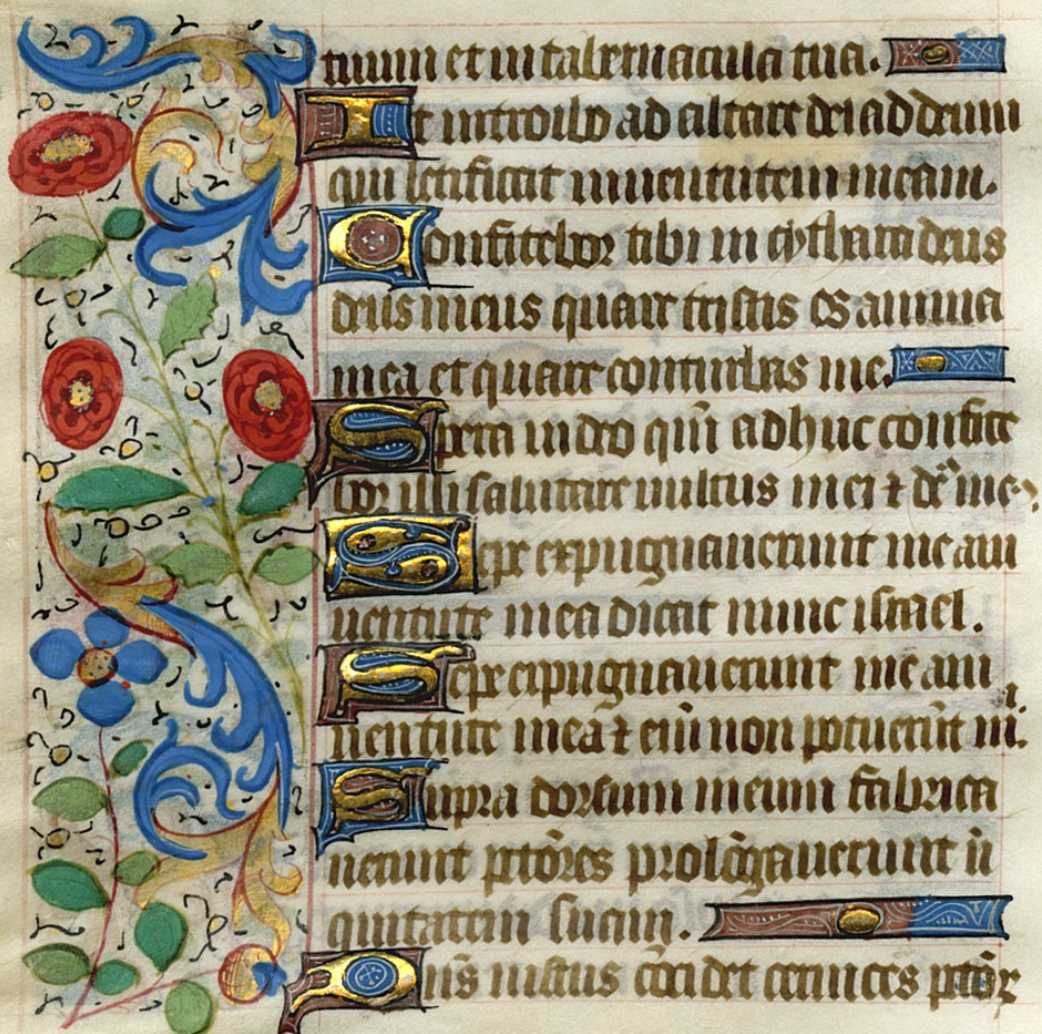 tuum et in tabernacula tua.
Et introibo ad altare dei ad deum
qui letificat iuuentutem meam.
Confitebor tibi in cythara deus
deus meus quare tristis es anima
mea et quare conturbas me.
Spera in deo qm̄ adhuc confite
bor illi salutare uultus mei ⁊ ds̄ me⁹
Sepe expugnauerunt me a iu
uentute mea dicat nunc israel.
Sepe expugnauerunt me a iu
uentute mea ⁊ em̄ non potuerūt m̄.
Supra dorsum meum fabrica
uerunt pctōres prolōgauerunt in̄
quitatem suam.
Dn̄s iustus cōcidet ceruices pctōꝝ